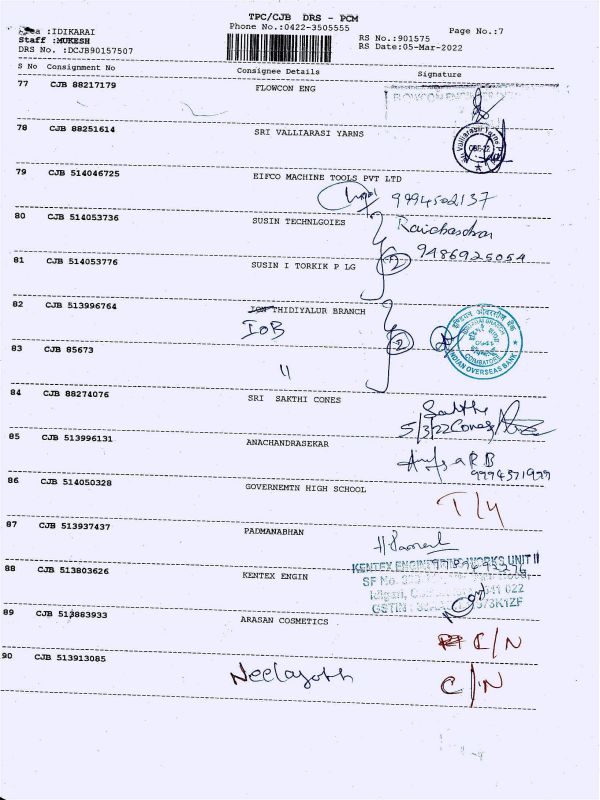 TPC/CJB DRS - PCM
Phone No.:0422-3505555
Page No.:7
:IDIKARAI
Staff :MUKESH
DRS No. :DCJB90157507
RS No.:901575
RS Date:05-Mar-2022
S No Consignment No Consignee Details Signature
77 CJB 88217179 FLOWCON ENG
78 CJB 88251614 SRI VALLIARASI YARNS
79 CJB 514046725 EIFCO MACHINE TOOLS PVT LTD
9994502137
80 CJB 514053736 SUSIN TECHNLGOIES
9486925054
81 CJB 514053776 SUSIN I TORKIK P LG
2
82 CJB 513996764 ION THIDIYALUR BRANCH
IOB
2
INDIAN OVERSEAS BANK
COIMBATORE
83 CJB 85673
"
84 CJB 88274076 SRI SAKTHI CONES
Sakthi
5/3/22 Cones
85 CJB 513996131 ANACHANDRASEKAR
9994571999
86 CJB 514050328 GOVERNEMTN HIGH SCHOOL
87 CJB 513937437 PADMANABHAN
88 CJB 513803626 KENTEX ENGIN
KENTEX ENGIN WORKS UNIT II
SF No.
641 022
GSTIN
89 CJB 513883933 ARASAN COSMETICS
C/N
90 CJB 513913085
C/N